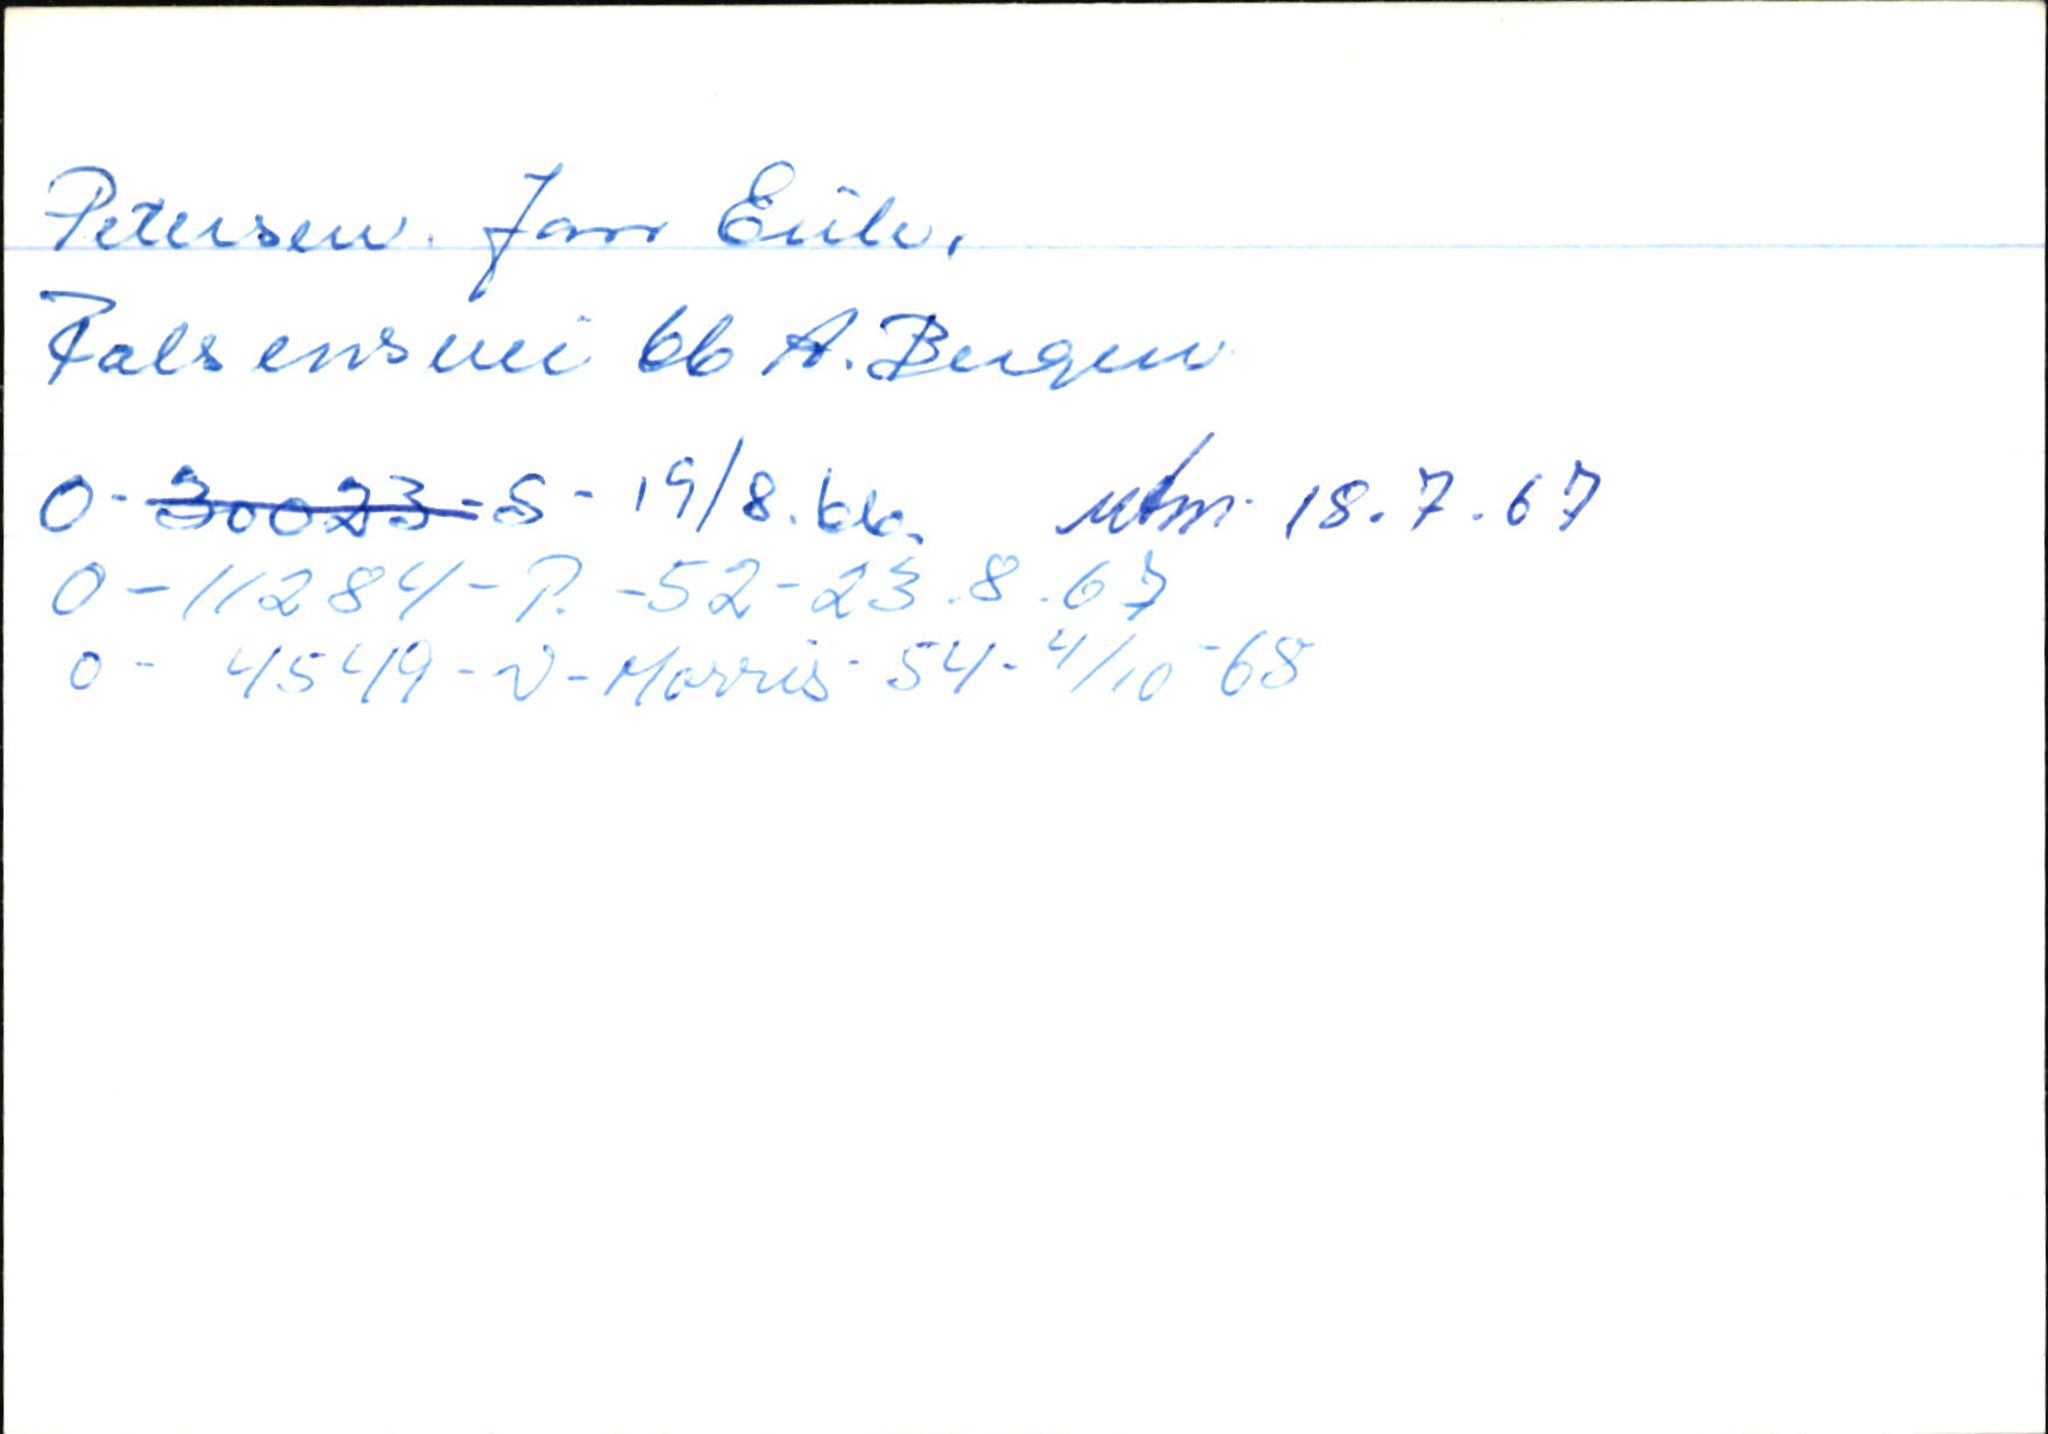 Petersen. Jan Erik,
Falsensvei 66 A. Bergen
O - 30023 - S - 19/8.66. utm. 18.7.67
O - 11284 - P. - 52 - 23.8.67
O - 4549 - V - Morris - 54 - 4/10 - 68